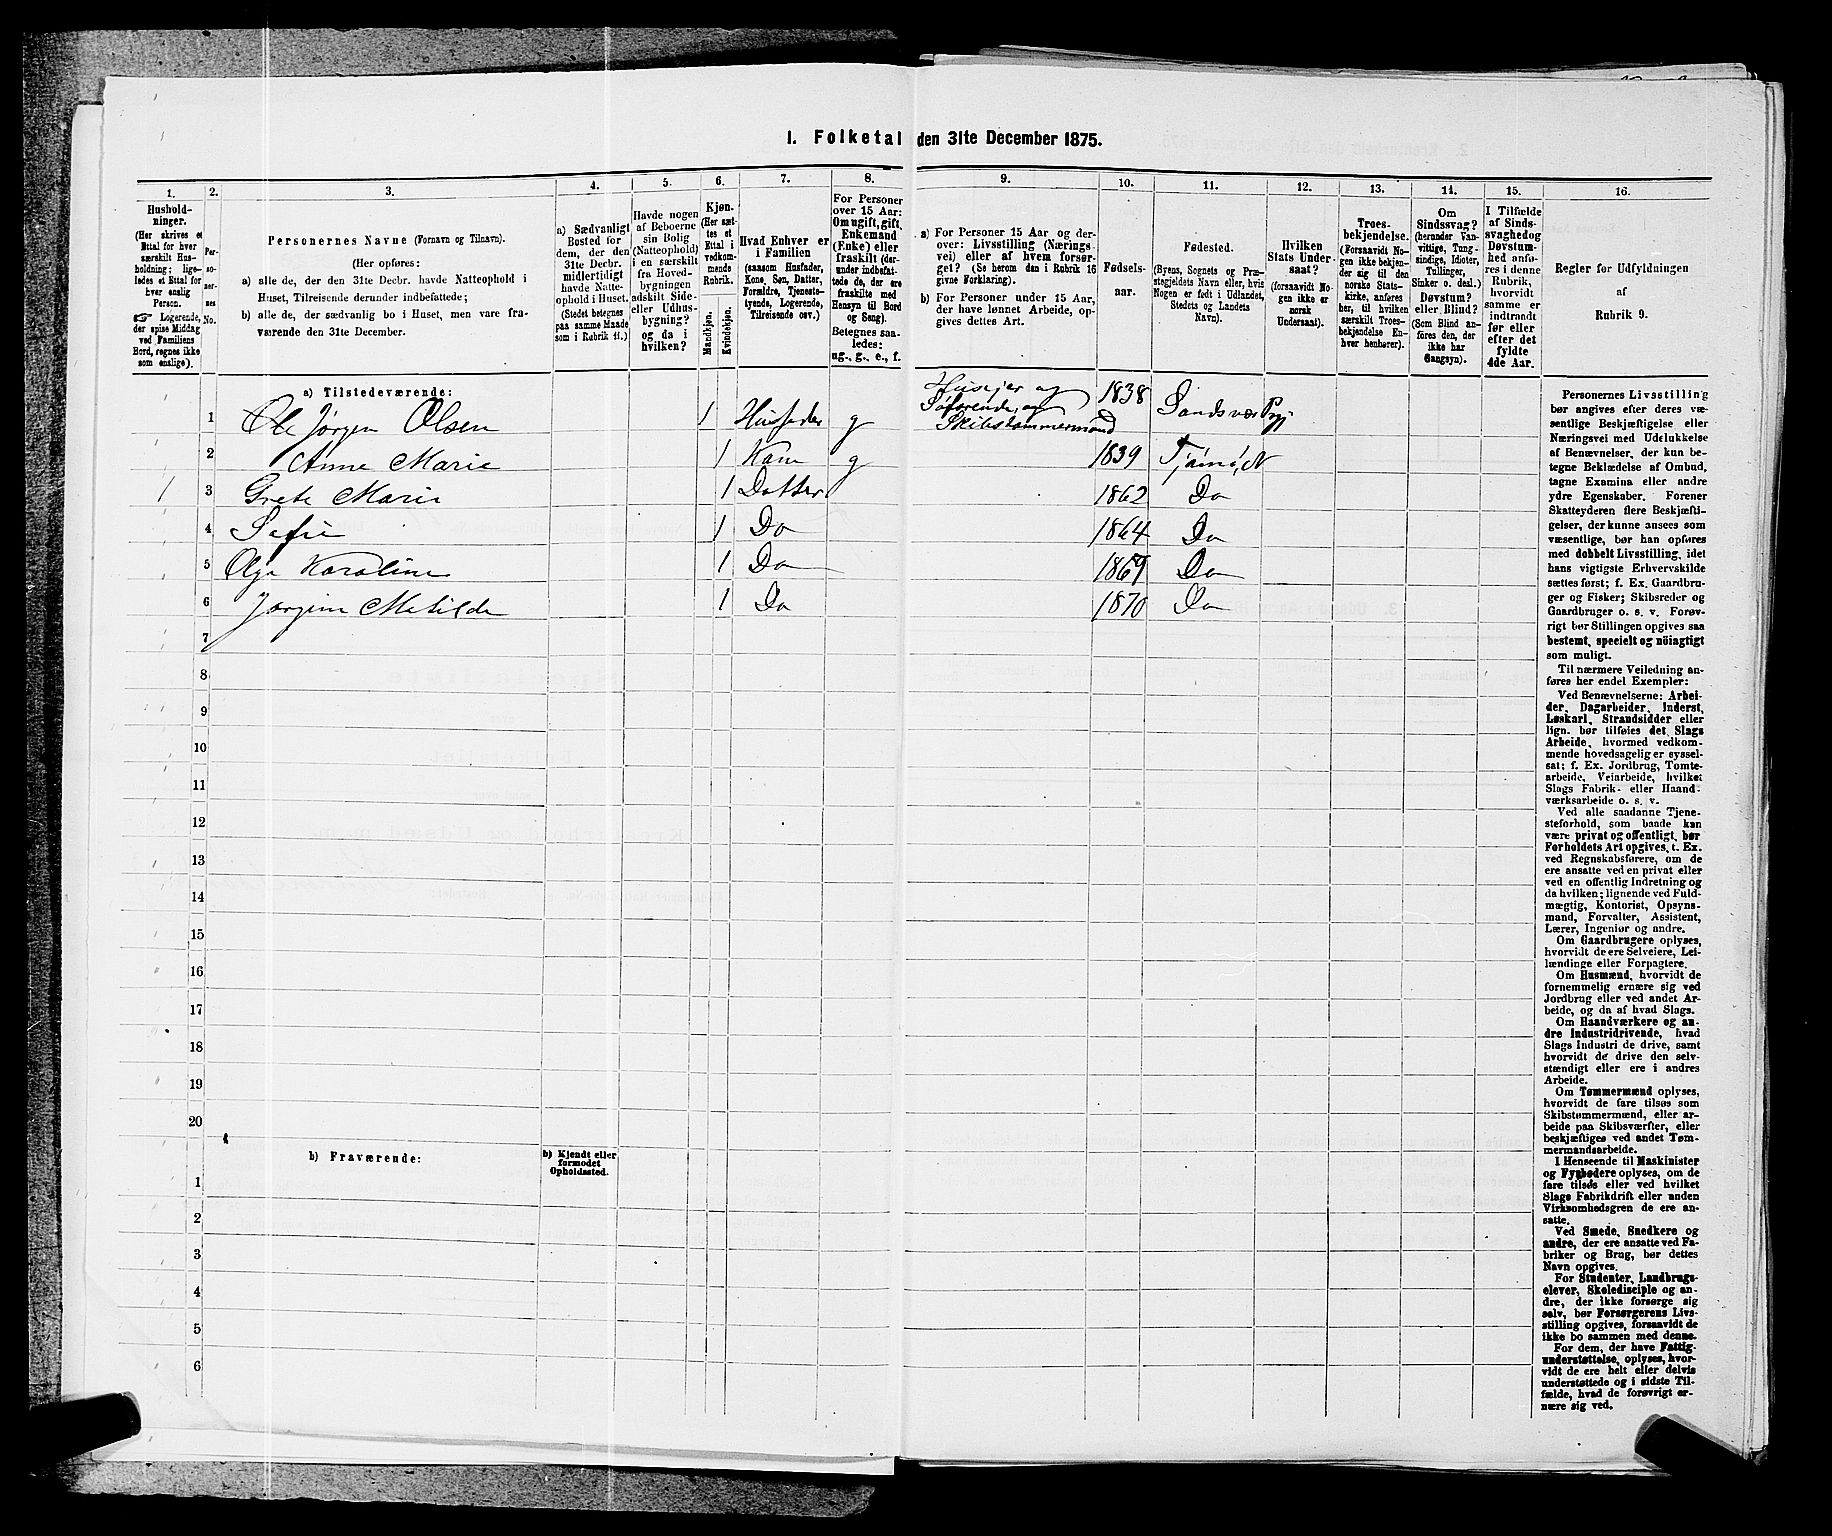 1. Folketal den 31te December 1875.
1.
2.
3.
4.
5.
6.
7.
8.
9.
10.
11.
12.
13.
14.
15.
16.
Hushold-
ninger.
(Her skrives et
Ettal for hver
særskilt Hus-
holdning; lige-
ledes et Ettal for
hver enslig
Person.
☞ Logerende,
der spise Middag
ved Familiens
Bord, regnes ikke
som enslige).
Per-
so-
ner-
nes
No.
Personernes Navne (Fornavn og Tilnavn).
(Her opføres:
a) alle de, der den 31te Decbr. havde Natteophold i
Huset, Tilreisende derunder indbefattede;
b) alle de, der sædvanlig bo i Huset, men vare fra-
værende den 31te December.
a) Sædvanligt
Bosted for
dem, der den
31te Decbr.
midlertidigt
havde Natte-
ophold i Huset.
(Stedet betegnes
paa samme Maade
som i Rubrik 11.)
Havde nogen
af Beboerne
sin Bolig
(Natteophold)
i en særskilt
fra Hoved-
bygningen
adskilt Side-
eller Udhus-
bygning?
og da i
hvilken?
Kjøn.
(Her sæt-
tes et
Ettal i
vedkom-
mende
Rubrik.
Mandkjøn.
Kvindekjøn.
Hvad Enhver er
i Familien
(saasom Husfader,
Kone, Søn, Datter,
Forældre, Tjeneste-
tyende, Logerende,
Tilreisende osv.)
For Personer
over 15 Aar:
Om ugift, gift,
Enkemand
(Enke) eller
fraskilt (der-
under indbefat-
tede de, der ere
fraskilte med
Hensyn til Bord
og Seng).
Betegnes saa-
ledes:
ug., g., e., f.
a) For Personer 15 Aar og der-
over: Livsstilling (Nærings-
vei) eller af hvem forsør-
get? (Se herom den i Rubrik 16
givne Forklaring).
b) For Personer under 15 Aar,
der have lønnet Arbeide, op-
gives dettes Art.
Fødsels-
aar.
Fødested.
(Byens, Sognets og Præ-
stegjeldets Navn eller, hvis
Nogen er født i Udlandet,
Stedets og Landets
Navn).
Hvilken
Stats Under-
saat?
(forsaavidt No-
gen ikke er
norsk
Undersaat).
Troes-
bekjendelse.
(Forsaavidt No-
gen ikke bekjen-
der sig til den
norske Stats-
kirke, anføres
her, til hvilken
særskilt Troes-
bekjendelse En-
hver henhører).
Om
Sindssvag?
(herunder Van-
vittige, Tung-
sindige, Idioter,
Tullinger,
Sinker o. desl.)
Døvstum?
eller Blind?
(Som Blind an-
føres den, der
ikke har
Gangsyn).
I Tilfælde
af Sinds-
svaghed og
Døvstum-
hed anfø-
res i denne
Rubrik,
hvorvidt
samme er
indtraadt
før eller
efter det
fyldte
4de Aar.
Regler for Udfyldningen
af
Rubrik 9.
a) Tilstedeværende:
1 Ole Jørgen Olsen 1 Husfader g Huseier og Søfarende, og Skibstømmermand 1838 Sandsvær Pgj
2 Anne Marie 1 Kone g 1839 Tjømø,
1 3 Grete Marie 1 Datter 1862 Do
4 Sofie 1 Do 1864 Do
5 Olga Karoline 1 Do 1869 Do
6 Jørgine Matilde 1 Do 1870 Do
7
8
9
10
11
12
13
14
15
16
17
18
19
20
b) Fraværende:
b) Kjendt eller
formodet
Opholdssted.
1
2
3
4
5
6
Personernes Livsstilling
bør angives efter deres væ-
sentlige Beskjæftigelse eller
Næringsvei med Udelukkelse
af Benævnelser, der kun be-
tegne Beklædelse af Ombud,
tagne Examina eller andre
ydre Egenskaber. Forener
Skatteyderen flere Beskjæfti-
gelser, der kunne ansees som
væsentlige, bør han opføres
med dobbelt Livsstilling, idet
hans vigtigste Erhvervskilde
sættes først; f. Ex. Gaardbru-
ger og Fisker; Skibsreder og
Gaardbruger o. s. v. Forøv-
rigt bør Stillingen opgives saa
bestemt, specielt og nøiagtigt
som muligt.
Til nærmere Veiledning an-
føres her endel Exempler:
Ved Benævnelserne: Arbei-
der, Dagarbeider, Inderst,
Løskarl, Strandsidder eller
lign. bør tilføies det Slags
Arbeide, hvormed vedkom-
mende hovedsagelig er syssel-
sat; f. Ex. Jordbrug, Tomte-
arbeide, Veiarbeide, hvilket
Slags Fabrik- eller Haand-
værksarbeide o. s. v.
Ved alle saadanne Tjene-
steforhold, som baade kan
være privat og offentligt, bør
Forholdets Art opgives, t. Ex.
ved Regnskabsførere, om de
ere ansatte ved en privat eller
ved en offentlig Indretning og
da hvilken; lignende ved Fuld-
mægtig, Kontorist, Opsyns-
mand, Forvalter, Assistent,
Lærer, Ingeniør og andre.
Om Gaardbrugere oplyses,
hvorvidt de ere Selveiere, Lei-
lændinge eller Forpagtere.
Om Husmænd, hvorvidt de
fornemmelig ernære sig ved
Jordbrug eller ved andet Ar-
beide, og da af hvad Slags.
Om Haandværkere og an-
dre Industridrivende, hvad
Slags Industri de drive, samt
hvorvidt de drive den selv-
stændigt eller ere i andres
Arbeide.
Om Tømmermænd oplyses,
hvorvidt de fare tilsøs som
Skibstømmermænd, eller ar-
beide paa Skibsværfter, eller
beskjæftiges ved andet Tøm-
mermandsarbeide.
I Henseende til Maskinister
og Fyrbødere oplyses, om de
fare tilsøs eller ved hvilket
Slags Fabrikdrift eller anden
Virksomhedsgren de ere an-
satte.
Ved Smede, Snedkere og
andre, der ere ansatte ved Fa-
briker og Brug, bør dettes
Navn opgives.
For Studenter, Landbrugs-
elever, Skoledisciple og an-
dre, der ikke forsørge sig
selv, bør Forsørgerens Livs-
stilling opgives, forsaavidt de
ikke bo sammen med denne.
For dem, der have Fattig-
understøttelse, oplyses, hvor-
vidt de ere helt eller delvis
understøttede og i sidste Til-
fælde, hvad de forøvrigt er-
nære sig ved.